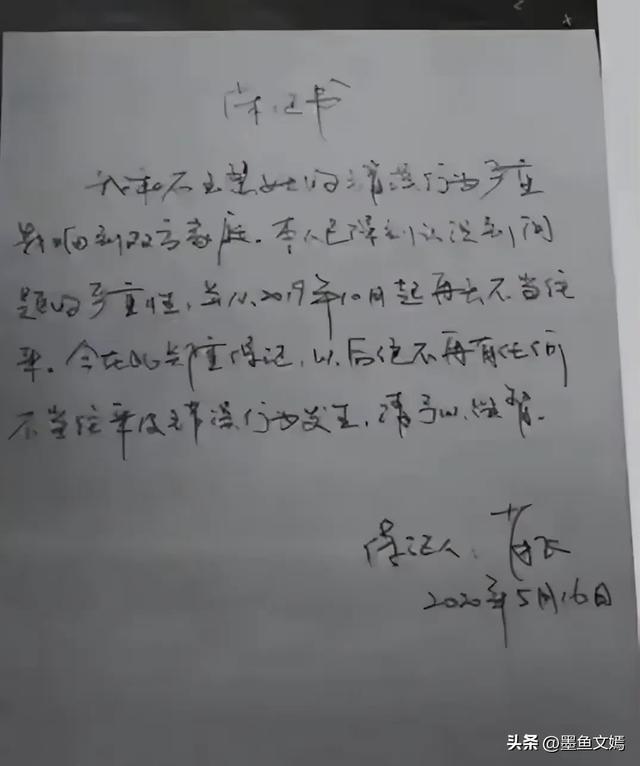 保证书
我和女士的错误行为严重
影响到双方家庭。本人已深刻认识到问
题的严重性,并从2019年10月起再无不当往
来。今在此郑重保证,以后绝不再有任何
不当往来及错误行为发生,请予以监督。
保证人:
2020年5月16日
头条 @墨鱼文嫣